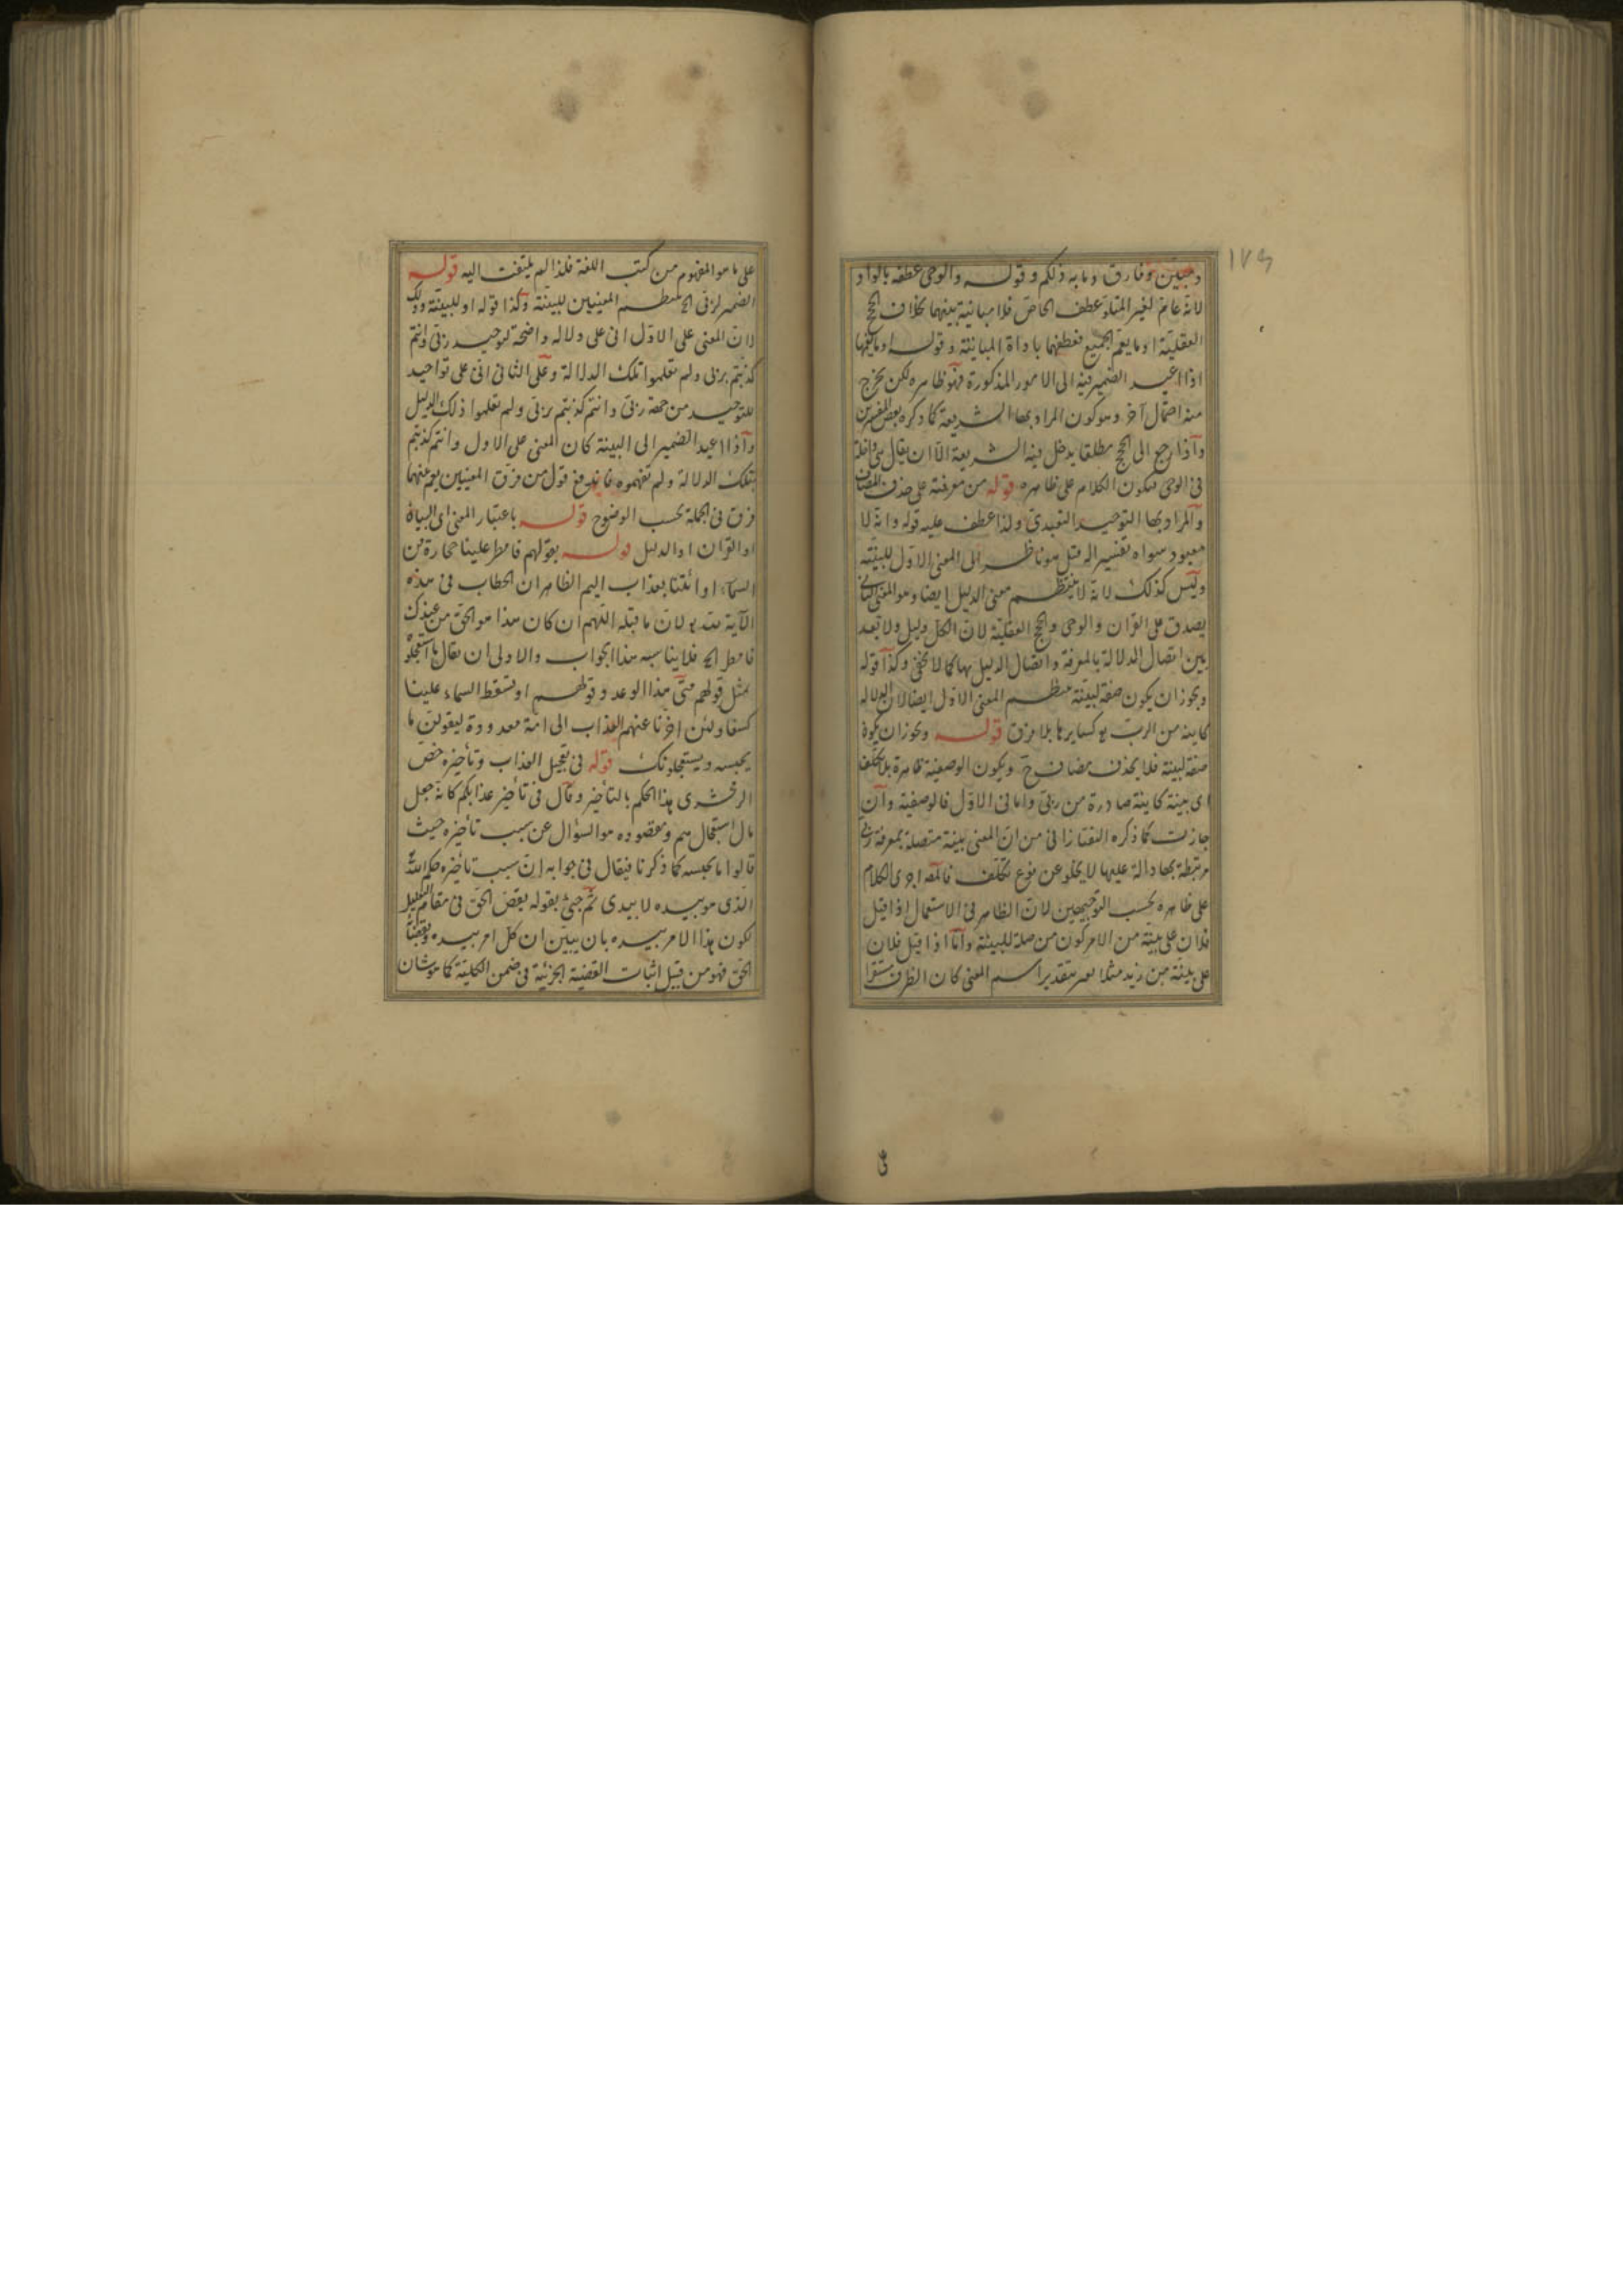 ١٧٩
ومبين وفارق وما به ذلكم وقوله والوحى عطفه بالواو
لانه عام لغير المتلو عطف الخاص فلا مباينة بينهما بخلاف الحج
العقلية او ما يعم الجميع فعطفهما باداة المباينة وقوله او ما يعمها
اذا اعيد الضمير فيه الى الامور المذكورة فهو ظاهر لكن يخرج
منه احتمال آخر وهو كون المراد بها الشريعة كما ذكره بعض المفسرين
واذا رجع الى الحج مطلقا يدخل فيه الشريعة الا ان يقال هى داخلة
فى الوحى فيكون الكلام على ظاهره قوله من معرفته على حذف المضاف
والمراد بها التوحيد التعبدى ولذا عطف عليه قوله وانه لا
معبود سواه تفسير اله قيل هو ناظر الى المعنى الاول للبينة
وليس كذلك لانه لا ينتظم معنى الدليل ايضا وهو المعنى الثانى
يصدق على القرآن والوحى والحج العقلية لان الكل دليل ولا بعد
بين اتصال الدلالة بالمعرفة واتصال الدليل بها كما لا يخفى وكذا قوله
ويجوز ان يكون صفة لبينة ينتظم المعنى الاول ايضا لان الدلالة
كاينة من الرب كسايرها بلا فرق قوله ويجوز ان يكون
صفة لبينة فلا يحذف مضاف ح ويكون الوصفية ظاهرة بلا تكلف
اى بينة كاينة صادرة من ربى واما فى الاول فالوصفية وان
جازت كما ذكره التفتازانى من ان المعنى بينة متصلة بمعرفة ربى
مرتبطة بها دالة عليها لا يخلو عن نوع تكلف فالمص اجرى الكلام
على ظاهره بحسب التوجيهين لان الظاهر فى الاستعمال اذا قيل
فلان على بينة من الامر كون من صلة للبينة واما اذا قيل فلان
على بينة من زيد مثلا بتقدير اسم المعنى كان الظرف مستقرا
على ما هو المفهوم من كتب اللغة فلذا لم يلتفت اليه قوله
الضمير لربى الخ ينتظم المعنيين للبينة وكذا قوله او للبينة وذلك
لان المعنى على الاول انى على دلالة واضحة لتوحيد ربى وانتم
كذبتم بربى ولم تعلموا تلك الدلالة وعلى الثانى انى على توحيد
للتوحيد من جهة ربى وانتم كذبتم بربى ولم تعلموا ذلك الدليل
واذا اعيد الضمير الى البينة كان المعنى على الاول وانتم كذبتم
بتلك الدلالة ولم تفهموه فاندفع قول من فرق المعنيين نعم بينهما
فرق فى الجملة بحسب الوضوح قوله باعتبار المعنى اى البيان
او القرآن او الدليل قوله بقولهم فامطر علينا حجارة من
السماء او ائتنا بعذاب اليم الظاهر ان الخطاب فى هذه
الآية لان ما قبله اللهم ان كان هذا هو الحق من عندك
فامطر الخ فلا يناسبه هذا الجواب والاولى ان يقال ما استعجلوه
بمثل قولهم متى هذا الوعد وقولهم او تسقط السماء علينا
كسفا ولئن اخرنا عنهم العذاب الى امة معدودة ليقولن ما
يحبسه ويستعجلونك قوله فى تعجيل العذاب وتأخيره خص
الزمخشرى هذا الحكم بالتأخير وقال فى تأخير عذابكم كانه جعل
مآل استعجالهم ومقصوده هو السؤال عن سبب تأخيره حيث
قالوا ما يحبسه كما ذكرنا فيقال فى جوابه ان سبب تأخيره حكم الله
الذى هو بيده لا بيدى ثم جئ بقوله يقض الحق فى مقام التعليل
لكون هذا الامر بيده بان يبين ان كل امر بيده
الحق فهو من قبيل اثبات القضية الجزئية فى ضمن الكلية كما هو شان